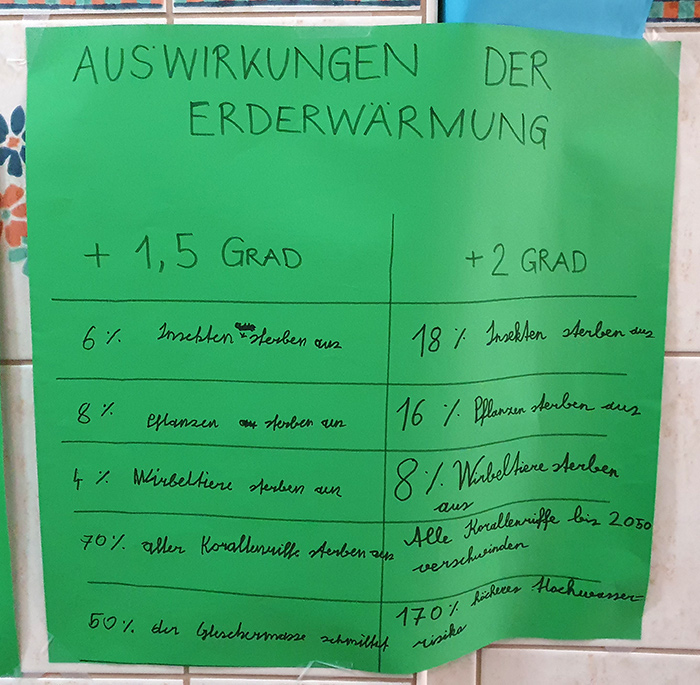 AUSWIRKUNGEN DER
ERDERWÄRMUNG
+ 1,5 GRAD
+ 2 GRAD
6 % Insekten sterben aus
18 % Insekten sterben aus
8 % Pflanzen sterben aus
16 % Pflanzen sterben aus
4 % Wirbeltiere sterben aus
8 % Wirbeltiere sterben
aus
70 % aller Korallenriffe sterben aus
Alle Korallenriffe bis 2050
verschwinden
50 % der Gletschermasse schmiltzt
170 % höheres Hochwasser-
risiko